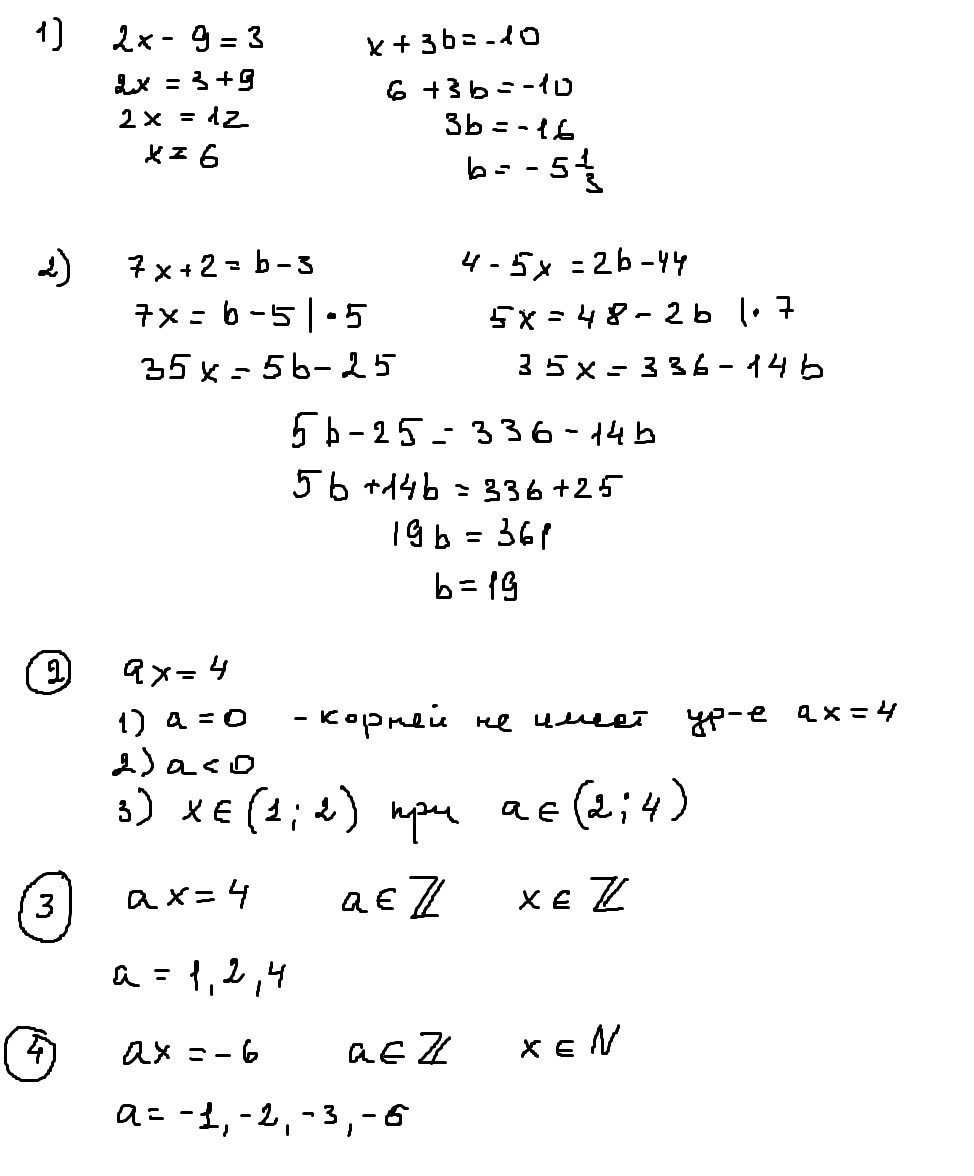 1) 2x - 9 = 3 x + 3b = -10
2x = 3 + 9 6 + 3b = -10
2x = 12 3b = -16
x = 6 b = - 5 1/3
2) 7x + 2 = b - 3 4 - 5x = 2b - 44
7x = b - 5 | · 5 5x = 48 - 2b | · 7
35x = 5b - 25 35x = 336 - 14b
5b - 25 = 336 - 14b
5b + 14b = 336 + 25
19b = 361
b = 19
2 ax = 4
1) a = 0 - корней не имеет ур-е ax = 4
2) a < 0
3) x ∈ (1; 2) при a ∈ (2; 4)
3 ax = 4 a ∈ ℤ x ∈ ℤ
a = 1, 2, 4
4 ax = -6 a ∈ ℤ x ∈ N
a = -1, -2, -3, -6